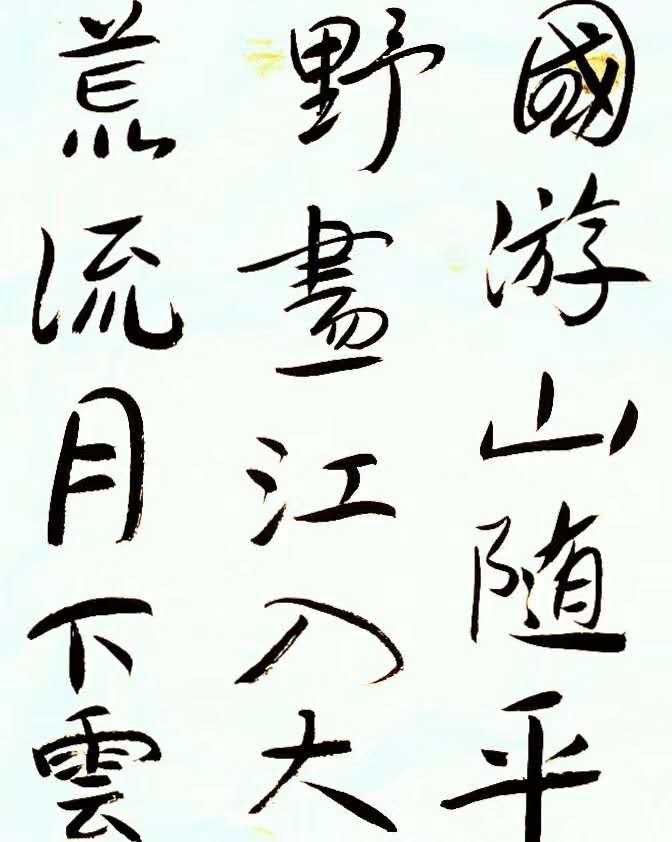 國游山随平
野盡江入大
荒流月下雲